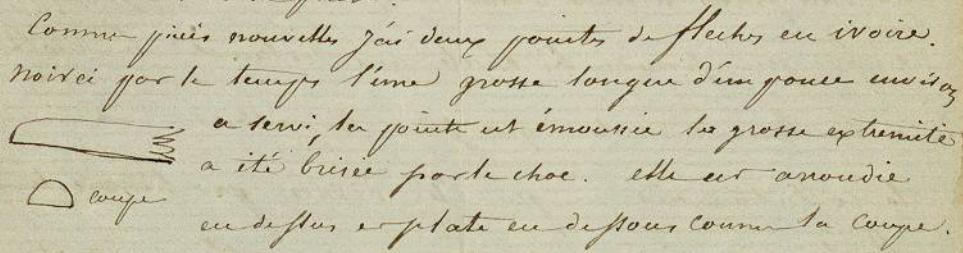 Comme pièces nouvelles j'ai deux pointes de flèches en ivoire.
noirci par le temps l'une grosse longue d'un pouce environ
a servi, la pointe est émoussée la grosse extremité
a été brisée par le choc. elle est arrondie
coupe
en dessus et plate en dessous comme la coupe.